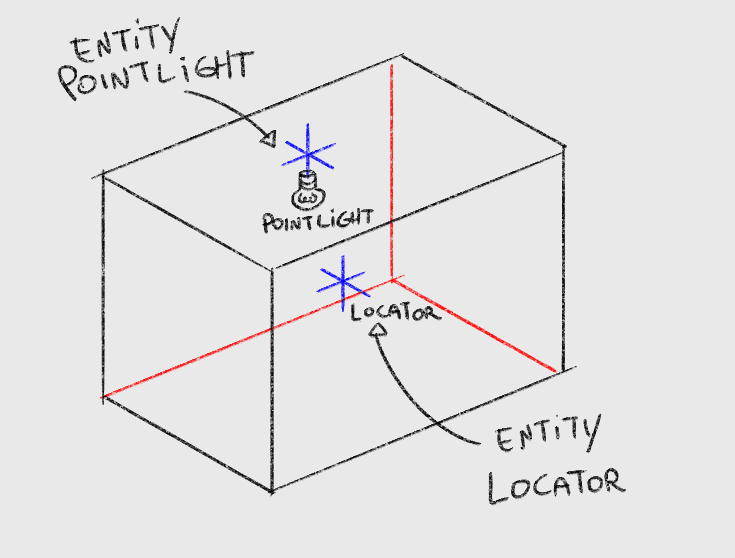 ENTiTY
POINTLiGHT
POINTLiGHT
LOCATOR
ENTiTY
LOCATOR